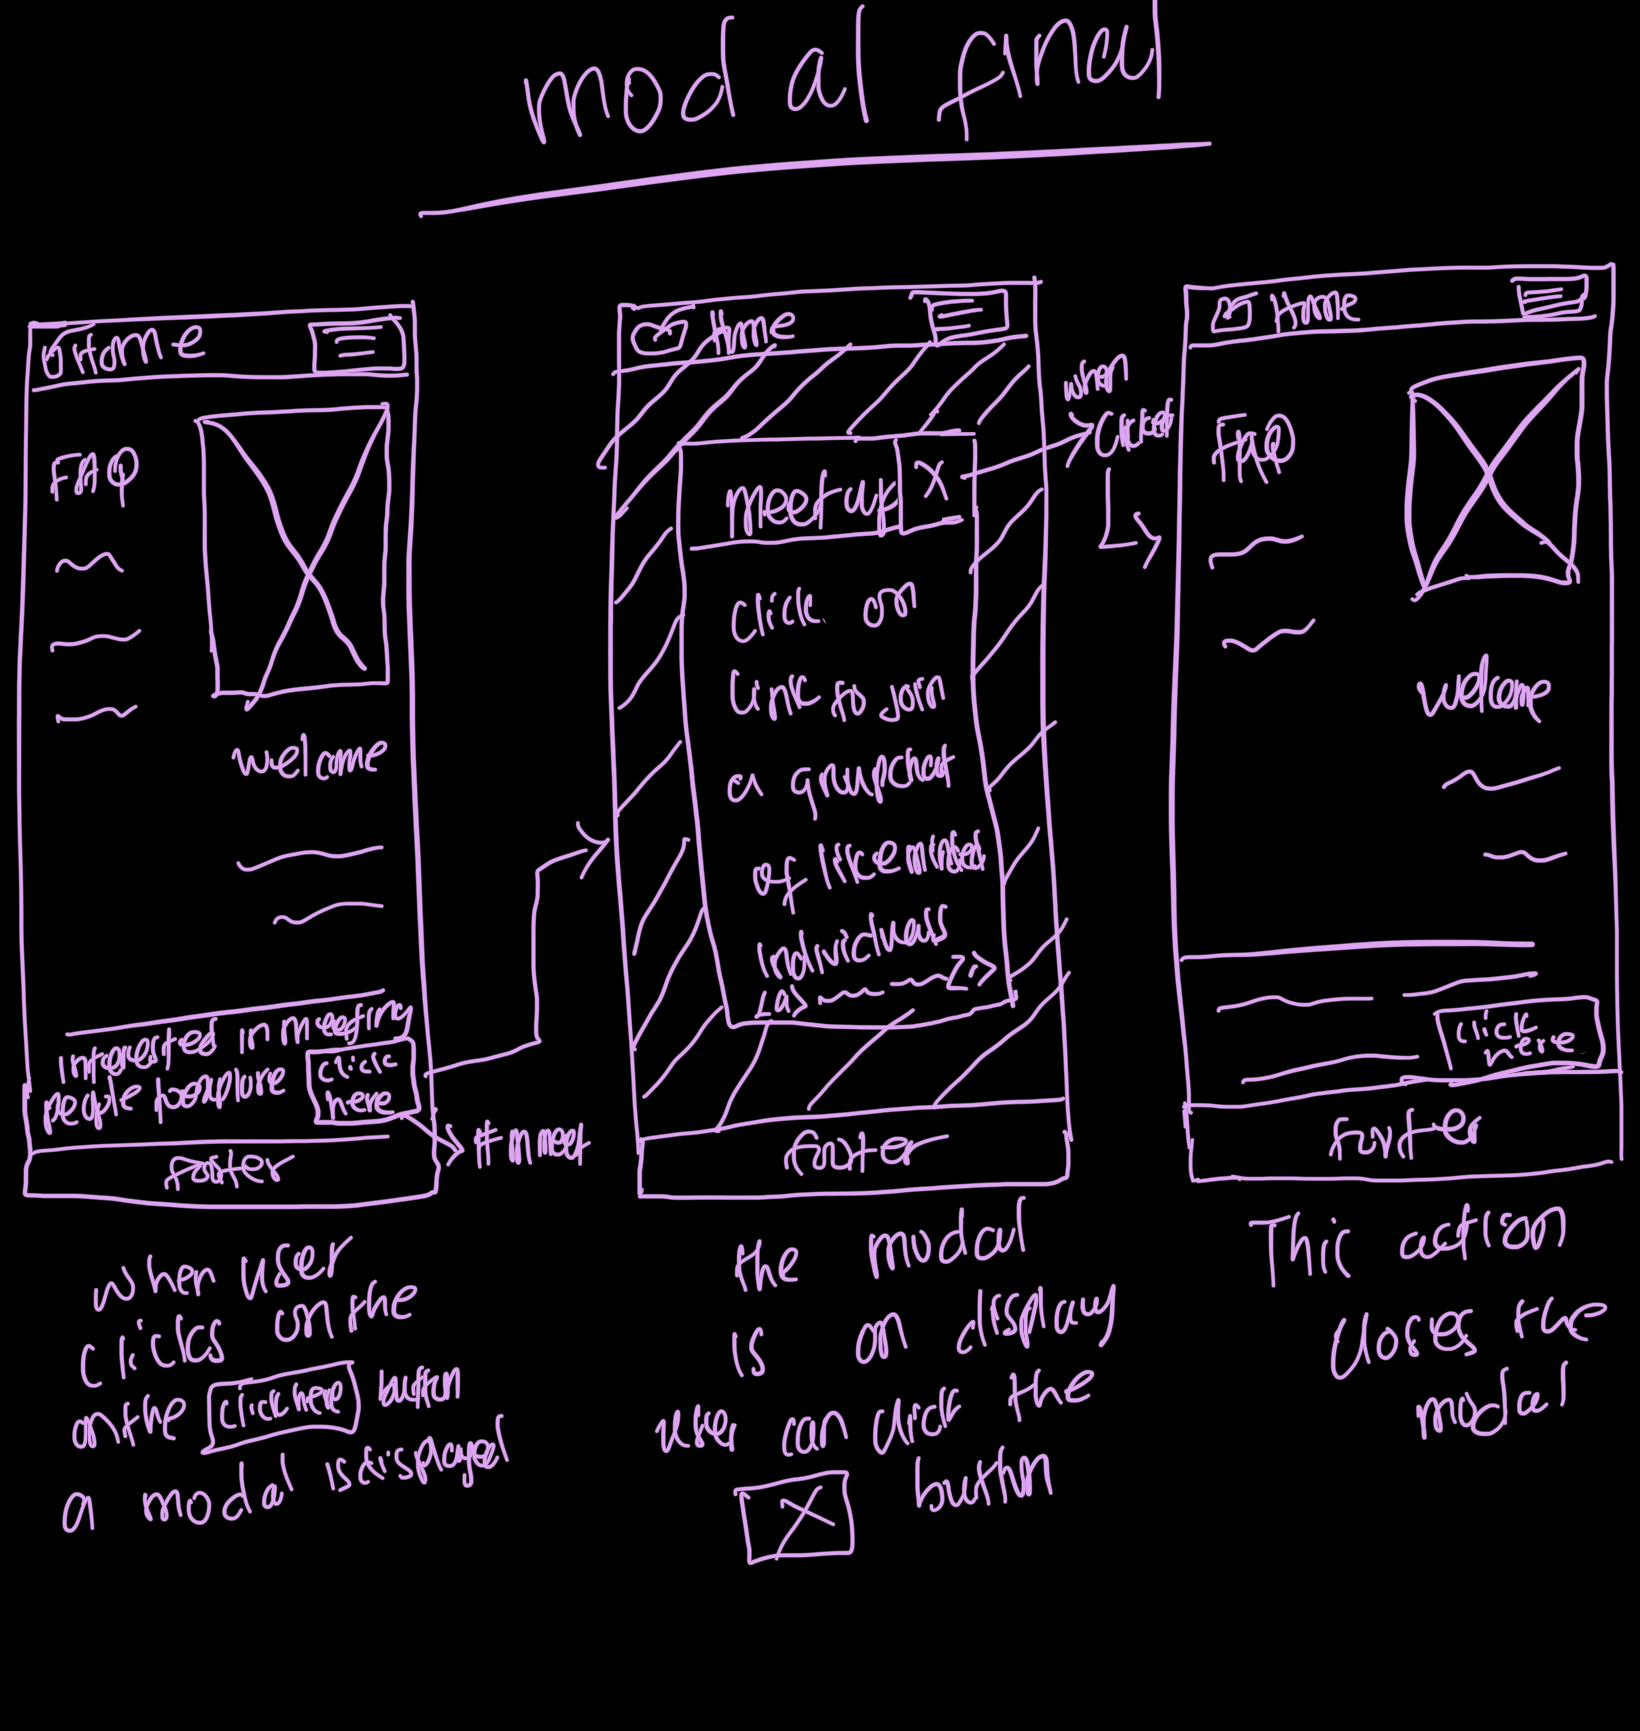 modal final
Home
FAQ
welcome
interested in meeting
people to explore
click
here
# m meet
footer
when user
clicks on the
on the click here button
a modal is displayed
Home
meetup X
click on
link to join
a groupchat
of likeminded
individuals
<a> </a>
footer
when
clicked
the modal
is on display
user can click the
X button
Home
FAQ
welcome
click
here
footer
This action
closes the
modal